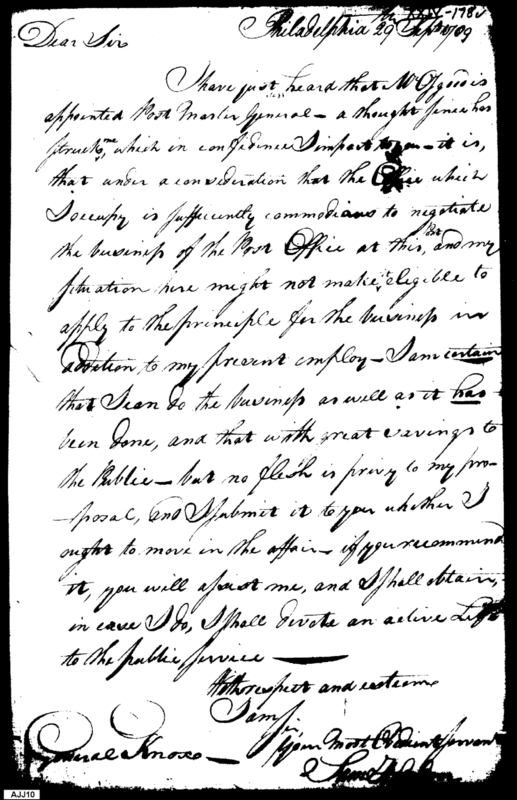 XXIV-178
Philadelphia 29 Sept 1789
Dear Sir
I have just heard that Mr Osgood is
appointed Post Master General – a thought since has
struck me, which in confidence I impart to you – it is,
that under a consideration that the Office which
I occupy is sufficiently commodious to negotiate
the business of the Post Office at this, and my
situation here might not make it eligible to
apply to the principle for the business in
addition to my present employ – I am certain
that I can do the business as well as it has
been done, and that with great savings to
the Public – but no flesh is privy to my pro-
-posal, and I submit it to you whether I
ought to move in the affair – if you recommend
it, you will assist me, and I shall obtain,
in case I do, I shall devote an active Life
to the public service —
With respect and esteem
I am Sir
Your most Obedient Servant
General Knox –
Saml
AJJ10